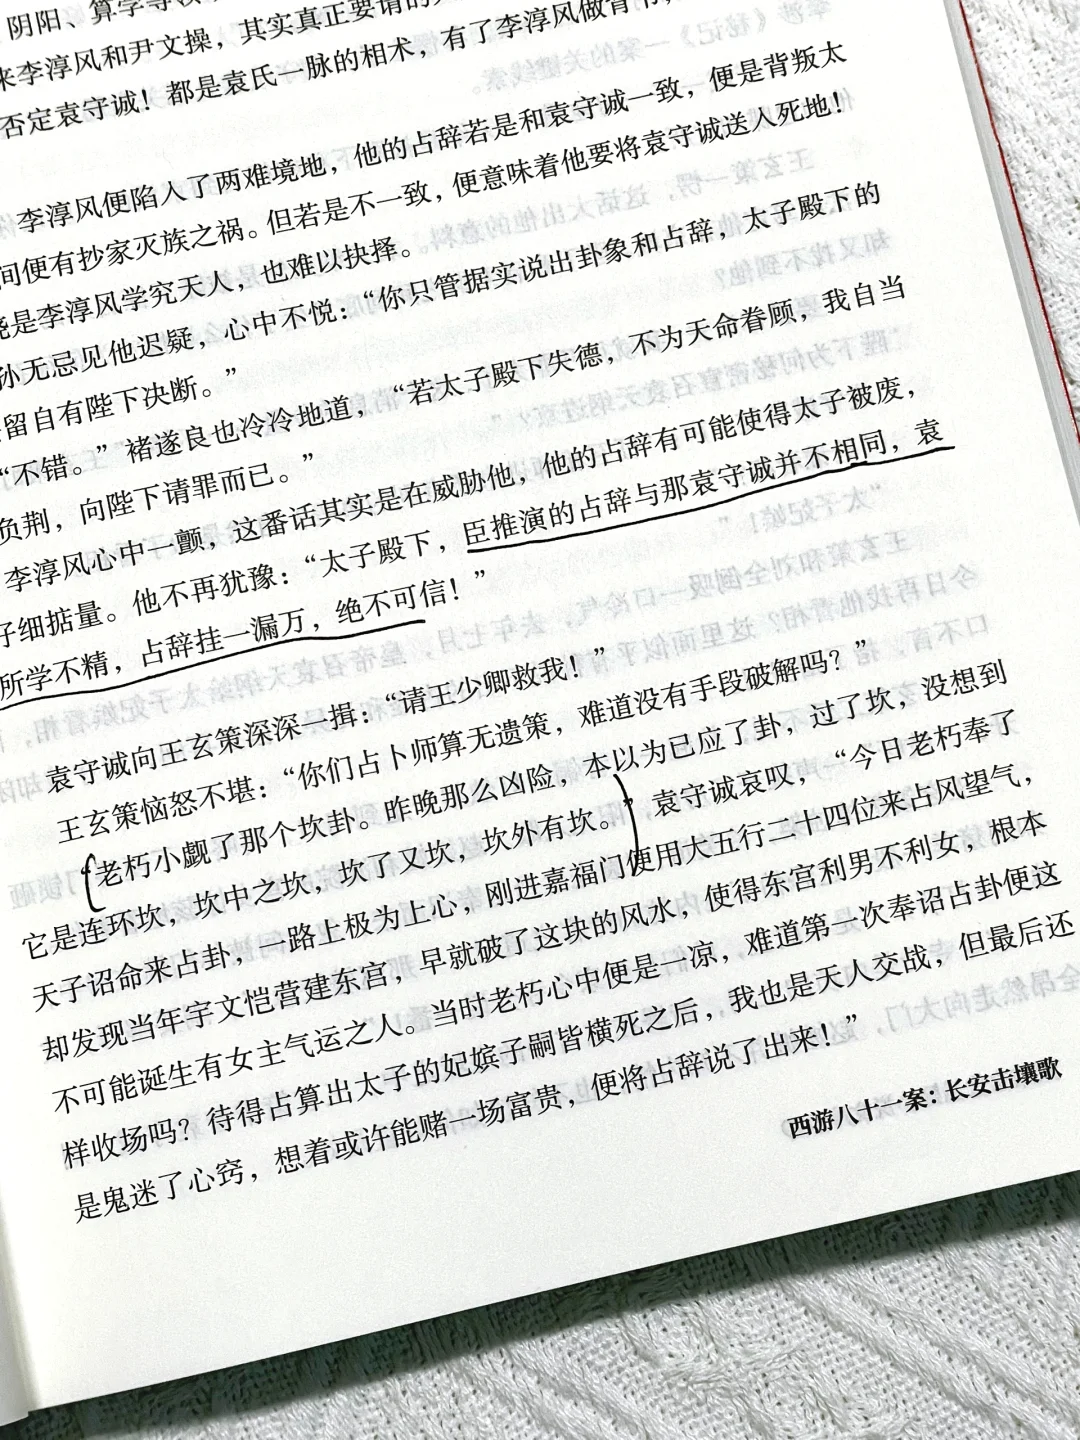 阴阳、算学等
来李淳风和尹文操，其实真正要请的
否定袁守诚！都是袁氏一脉的相术，有了李淳风做背书，
李淳风便陷入了两难境地，他的占辞若是和袁守诚一致，便是背叛太
间便有抄家灭族之祸。但若是不一致，便意味着他要将袁守诚送入死地！
饶是李淳风学究天人，也难以抉择。
孙无忌见他迟疑，心中不悦：“你只管据实说出卦象和占辞，太子殿下的
留自有陛下决断。”
“不错。”褚遂良也冷冷地道，“若太子殿下失德，不为天命眷顾，我自当
负荆，向陛下请罪而已。”
李淳风心中一颤，这番话其实是在威胁他，他的占辞有可能使得太子被废，
仔细掂量。他不再犹豫：“太子殿下，臣推演的占辞与那袁守诚并不相同，袁
所学不精，占辞挂一漏万，绝不可信！”
袁守诚向王玄策深深一揖：“请王少卿救我！”
王玄策恼怒不堪：“你们占卜师算无遗策，难道没有手段破解吗？”
“老朽小觑了那个坎卦。昨晚那么凶险，本以为已应了卦，过了坎，没想到
它是连环坎，坎中之坎，坎了又坎，坎外有坎。”袁守诚哀叹，“今日老朽奉了
天子诏命来占卦，一路上极为上心，刚进嘉福门便用大五行二十四位来占风望气，
却发现当年宇文恺营建东宫，早就破了这块的风水，使得东宫利男不利女，根本
不可能诞生有女主气运之人。当时老朽心中便是一凉，难道第一次奉诏占卦便这
样收场吗？待得占算出太子的妃嫔子嗣皆横死之后，我也是天人交战，但最后还
是鬼迷了心窍，想着或许能赌一场富贵，便将占辞说了出来！”
西游八十一案：长安击壤歌